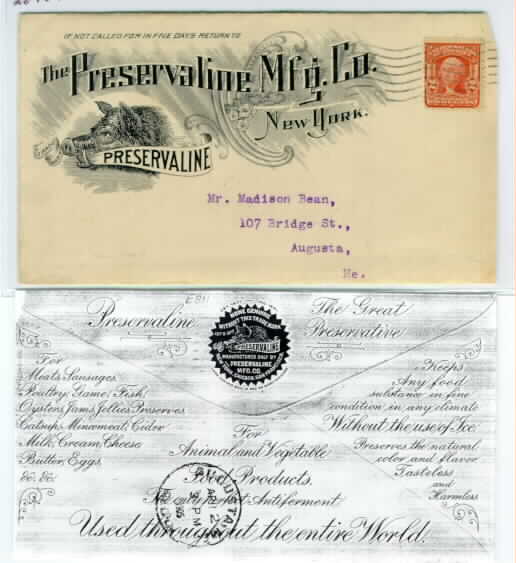 IF NOT CALLED FOR IN FIVE DAYS RETURN TO
The Preservaline Mfg. Co.
New York.
PRESERVALINE
Mr. Madison Bean,
107 Bridge St.,
Augusta,
Me.
E811
Preservaline
The Great
Preservative
NONE GENUINE
WITHOUT THIS TRADE MARK
PRESERVALINE
MANUFACTURED ONLY BY
PRESERVALINE
MFG. CO.
For
Meats, Sausages,
Poultry, Game, Fish,
Oysters, Jams, Jellies, Preserves
Catsups, Mincemeat, Cider
Milk, Cream, Cheese
Butter, Eggs,
&c. &c.
Keeps
Any food
substance in fine
condition in any climate
Without the use of Ice
Preserves the natural
color and flavor
Tasteless
and
Harmless
For
Animal and Vegetable
Food Products.
Antiferment.
AUGUSTA
APR 2
PM
Used throughout the entire World.